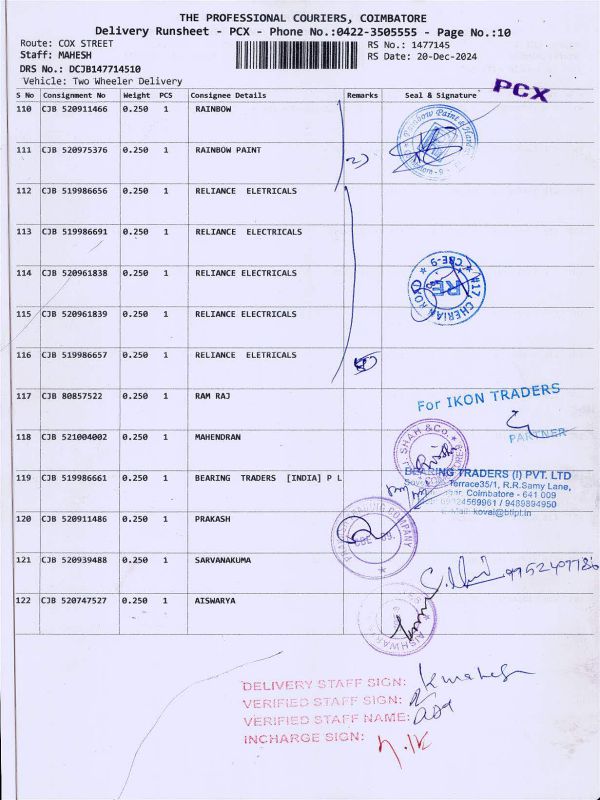 THE PROFESSIONAL COURIERS, COIMBATORE
Delivery Runsheet - PCX - Phone No.:0422-3505555 - Page No.:10
Route: COX STREET
RS No.: 1477145
Staff: MAHESH
RS Date: 20-Dec-2024
DRS No.: DCJB147714510
Vehicle: Two Wheeler Delivery
PCX
S No Consignment No Weight PCS Consignee Details Remarks Seal & Signature
110 CJB 520911466 0.250 1 RAINBOW
111 CJB 520975376 0.250 1 RAINBOW PAINT
112 CJB 519986656 0.250 1 RELIANCE ELETRICALS
113 CJB 519986691 0.250 1 RELIANCE ELECTRICALS
114 CJB 520961838 0.250 1 RELIANCE ELECTRICALS
CBE-9
RE
417, CHERIAN ROAD
115 CJB 520961839 0.250 1 RELIANCE ELECTRICALS
116 CJB 519986657 0.250 1 RELIANCE ELETRICALS
117 CJB 80857522 0.250 1 RAM RAJ
For IKON TRADERS
PARTNER
118 CJB 521004002 0.250 1 MAHENDRAN
SHAH & Co.
119 CJB 519986661 0.250 1 BEARING TRADERS [INDIA] P L
BEARING TRADERS (I) PVT. LTD
Terrace35/1, R.R.Samy Lane,
Coimbatore - 641 009
/ 9489894950
120 CJB 520911486 0.250 1 PRAKASH
COMPANY
121 CJB 520939488 0.250 1 SARVANAKUMA
122 CJB 520747527 0.250 1 AISWARYA
DELIVERY STAFF SIGN: K mahesh
VERIFIED STAFF SIGN:
VERIFIED STAFF NAME:
INCHARGE SIGN: